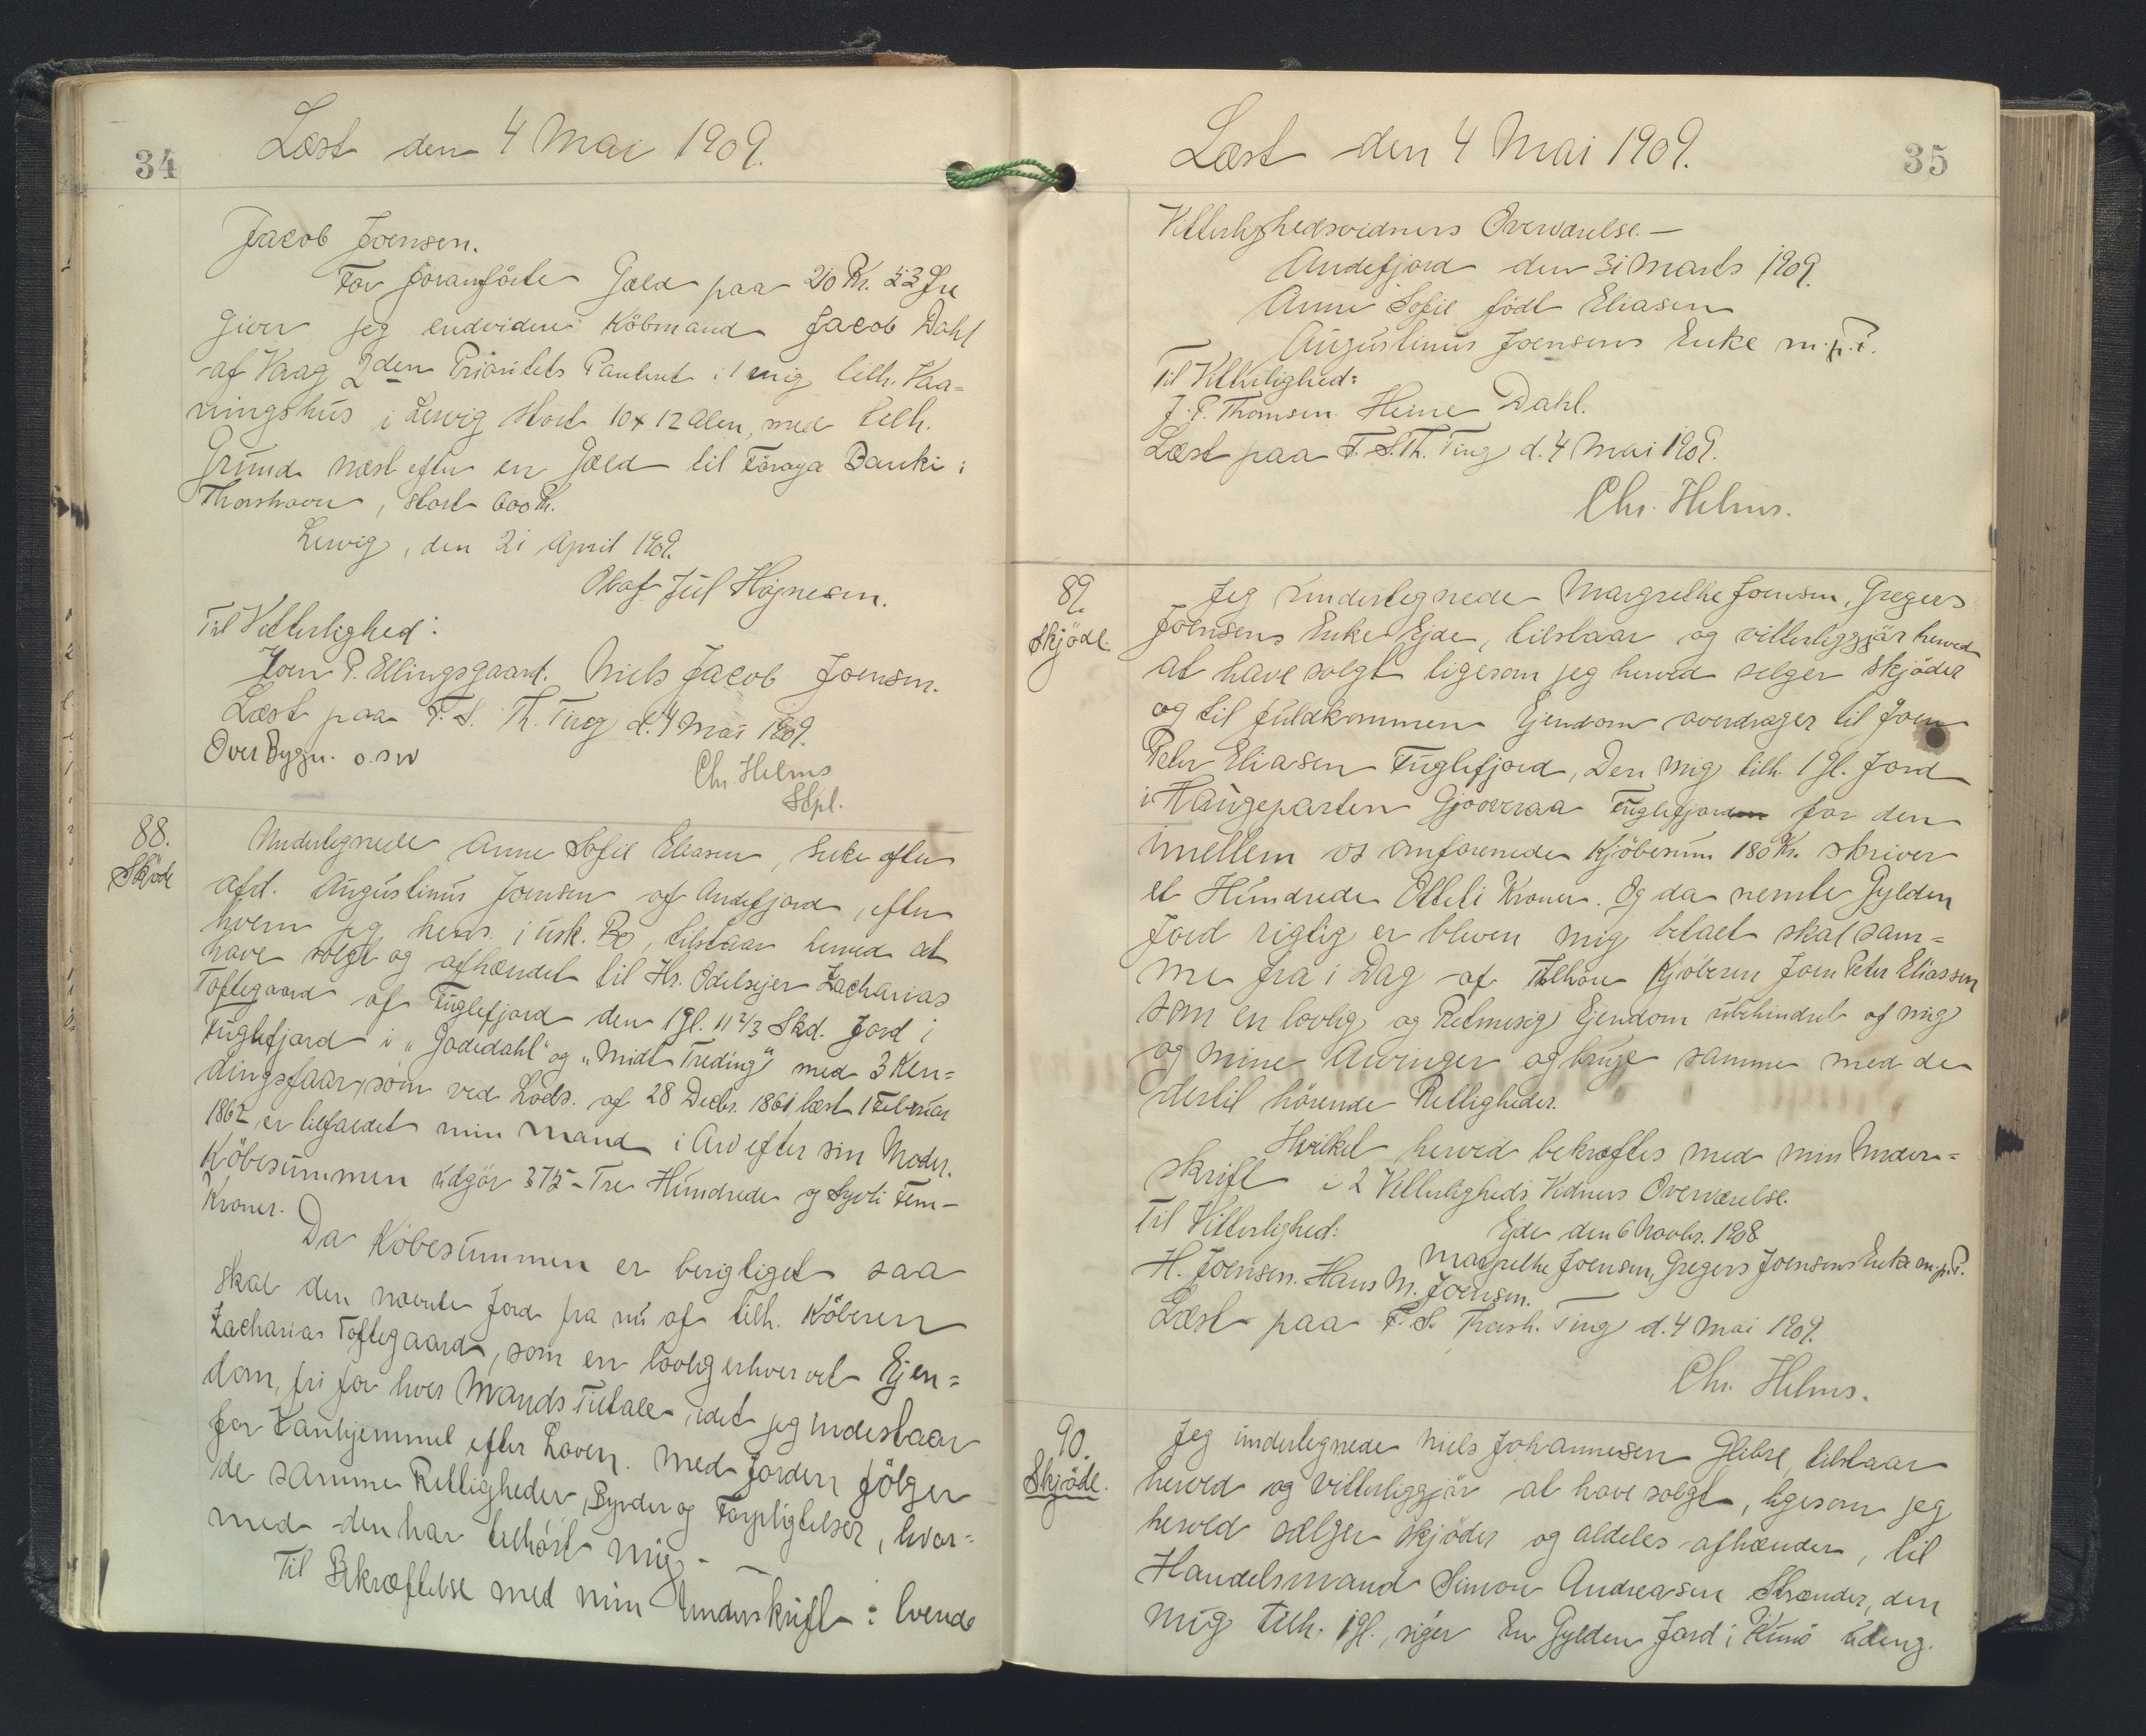 34
Læst den 4 Mai 1909.
Jacob Joensen.
For foranförte Gæld paa 210 Kr. 53 Øre
giver jeg endvidere Köbmand Jacob Dahl
af Vaag 2den Prioritets Panteret i mig tilh. Vaa=
ningshus i Lervig stort 10 x 12 Alen, med tilh.
Grund næst efter en Gæld til Föroya Banki i
Thorshavn, stort 600 Kr.
Lervig, den 21 April 1909.
Olaf Jul Højnesen.
Til Vitterlighed:
Joen P. Ellingsgaard. Niels Jacob Joensen.
Læst paa F. S. Th. Ting d. 4 Mai 1909.
Over Bygn. o. s v
Chr. Helms
Stpl.
88.
Sköde
Undertegnede Anne Sofie Eliasen, Enke efter
afd. Augustinus Joensen af Andefjord, efter
hvem jeg hens. i usk. Bo, tilstaar herved at
have solgt og afhændet til Hr. Odelsejer Zacharias
Toftegaard af Fuglefjord den 1 gl. 11 2/3 Skd. Jord i
Fuglefjord i "Gadedahl" og "Midt Treding" med 3 Ken=
dingsfaar, som ved Lods. af 28 Decbr. 1861, læst 1 Februar
1862 er tilfaldet min Mand i Arv efter sin Moder.
Köbesummen udgör 375 - Tre Hundrede og Syvti Fem -
Kroner.
Da Köbesummen er berigtiget saa
skal den nævnte Jord fra nu af tilh. Köberen
Zacharias Toftegaard, som en lovlig erhvervet Ejen=
dom, fri for hver Mands Tiltale idet jeg indestaar
for Vanhjemmel efter Loven. Med Jorden fölger
de samme Rettigheder, Byrder og Forpligtelser, hvor=
med den har tilhört mig. -
Til Bekræftelse med min Underskrift i tvende
35
Læst den 4 Mai 1909.
Vitterlighedsvidners Overværelse. -
Andefjord den 31 Marts 1909.
Anne Sofie födt Eliasen
Augustinus Joensens Enke m. p. P.
Til Vitterlighed:
J. P. Thomsen. Heine Dahl.
Læst paa F. S. Th. Ting d. 4 Mai 1909.
Chr. Helms.
89.
Skjöde.
Jeg undertegnede Margrethe Joensen, Gregers
Joensens Enke Ejde, tilstaar og vitterliggjör herved
at have solgt ligesom jeg herved selger skjöder
og til fuldkommen Ejendom overdrager til Joen
Peter Eliasen Fuglefjord, Den mig tilh. 1 gl. Jord
i Haugeparten Gjooveraa Fuglefjord for den
imellem os omforenede Kjöbesum 180 Kr. skriver
et Hundrede Otteti Kroner. Og da nemte Gylden
Jord rigtig er bleven mig betaet skal sam=
me fra i Dag af Tilhöre Kjöberen Joen Peter Eliassen
som en lovlig og Retmesig Ejendom ubehindret af mig
og mine Arvinger og bruge samme med de
dertil hörende Rettigheder.
Hvilket herved bekræftes med min Under=
skrift i 2 Vitterligheds Vidners Overværelse.
Til Vitterlighed:
Ejde den 6 Novbr. 1908
Margrethe Joensen, Gregers Joensens Enke m. p. P.
H. Joensen. Hans M. Joensen.
Læst paa F. S. Thorsh. Ting d. 4 Mai 1909.
Chr. Helms.
90.
Skjöde.
Jeg undertegnede Niels Johannesen Glibre, tilstaar
herved og vitterliggjör at have solgt, ligesom jeg
herved sælger skjöder og aldeles afhænder, til
Handelsmand Simon Andreasen Strænder, den
mig tilh. 1 gl., siger En Gylden Jord i Kunö udeng.